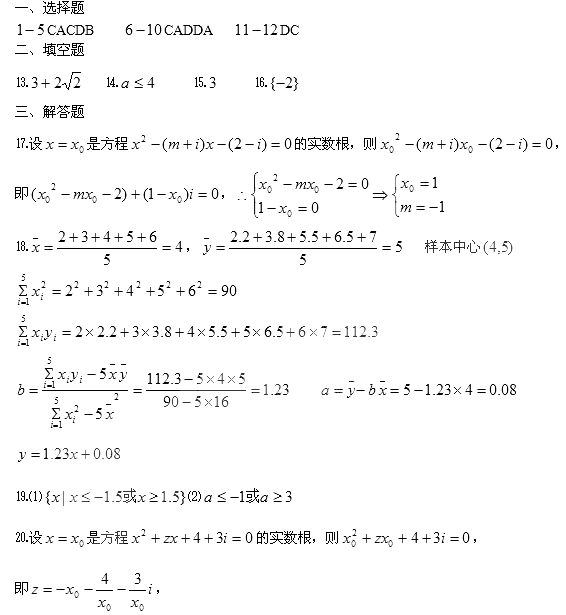 一、选择题
1－5 CACDB 6－10 CADDA 11－12 DC
二、填空题
13. 3+2√2 14. a≤4 15. 3 16. {−2}
三、解答题
17.设 x=x₀ 是方程 x²−(m+i)x−(2−i)=0 的实数根，则 x₀²−(m+i)x₀−(2−i)=0，
即 (x₀²−mx₀−2)+(1−x₀)i=0，∴ {x₀²−mx₀−2=0 1−x₀=0 ⇒ {x₀=1 m=−1
18. x̄=(2+3+4+5+6)/5=4，ȳ=(2.2+3.8+5.5+6.5+7)/5=5 样本中心(4,5)
∑_{i=1}^{5} x_i²=2²+3²+4²+5²+6²=90
∑_{i=1}^{5} x_i y_i=2×2.2+3×3.8+4×5.5+5×6.5+6×7=112.3
b=(∑_{i=1}^{5} x_i y_i−5x̄ȳ)/(∑_{i=1}^{5} x_i²−5x̄²)=(112.3−5×4×5)/(90−5×16)=1.23 a=ȳ−bx̄=5−1.23×4=0.08
y=1.23x+0.08
19.(1){x| x≤−1.5或x≥1.5}(2) a≤−1或a≥3
20.设 x=x₀ 是方程 x²+zx+4+3i=0 的实数根，则 x₀²+zx₀+4+3i=0，
即 z=−x₀−4/x₀−(3/x₀)i，